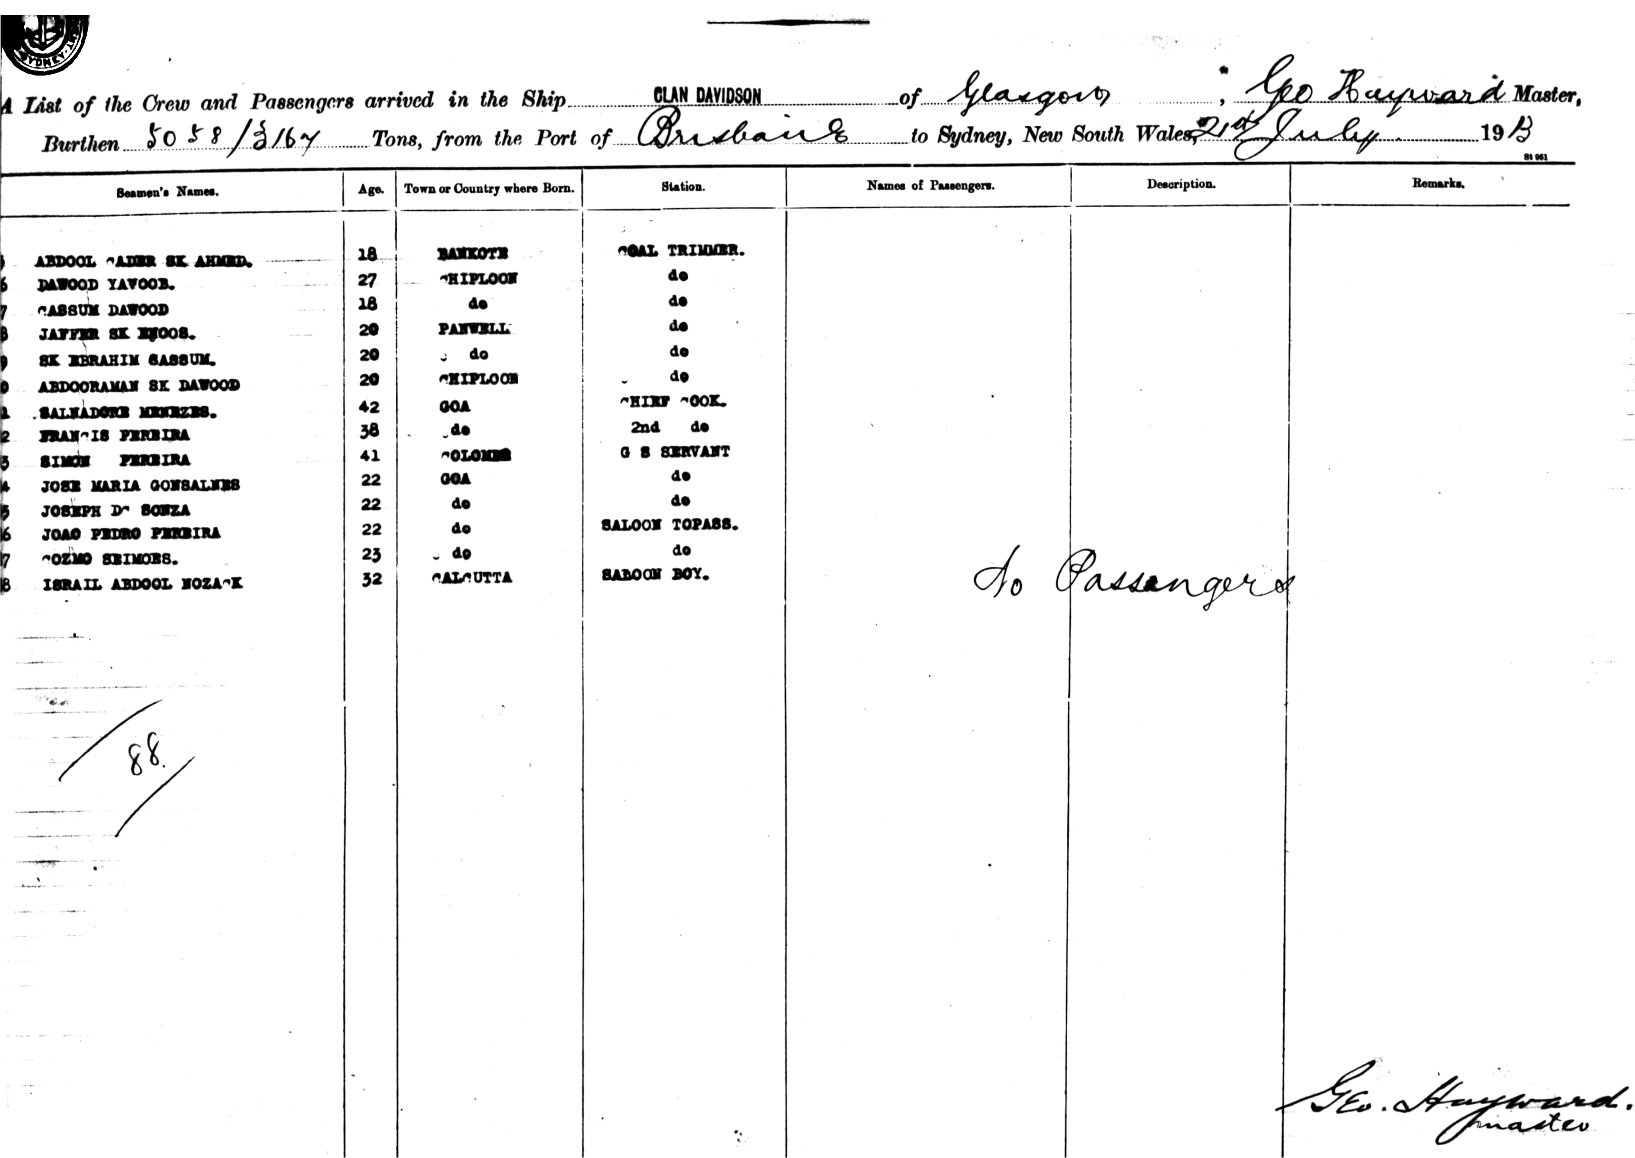 SYDNEY
A List of the Crew and Passengers arrived in the Ship CLAN DAVIDSON of Glasgow, Geo Hayward Master,
Burthen 5058/3167 Tons, from the Port of Brisbane to Sydney, New South Wales, 21st July 1913
St 961
Seamen's Names. Age. Town or Country where Born. Station. Names of Passengers. Description. Remarks.
ABDOOL CADER SK AHMED. 18 BANKOTE COAL TRIMMER.
6 DAWOOD YAVOOB. 27 CHIPLOON do
7 CASSUM DAWOOD 18 do do
8 JAFFER SK ENOOS. 20 PANWELL do
9 SK EBRAHIM GASSUM. 20 do do
0 ABDOORAMAN SK DAWOOD 20 CHIPLOON do
1 SALNADORE MENEZES. 42 GOA CHIEF COOK.
2 FRANCIS PEREIRA 38 do 2nd do
3 SIMON PEREIRA 41 COLOMBO G S SERVANT
4 JOSE MARIA GONSALNES 22 GOA do
5 JOSEPH DC SONZA 22 do do
6 JOAO PEDRO PEREIRA 22 do SALOON TOPASS.
7 COZMO SEIMOES. 23 do do
8 ISRAIL ABDOOL NOZACK 32 CALCUTTA SALOON BOY.
No Passengers
88.
Geo. Hayward.
master